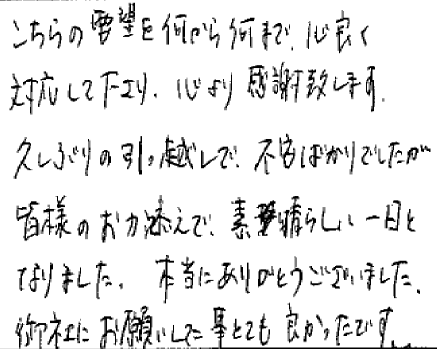 こちらの要望を何から何まで、心良く
対応して下さり、心より感謝致します。
久しぶりの引っ越しで、不安ばかりでしたが
皆様のお力添えで、素晴らしい一日と
なりました。本当にありがとうございました。
御社にお願いした事とても良かったです。